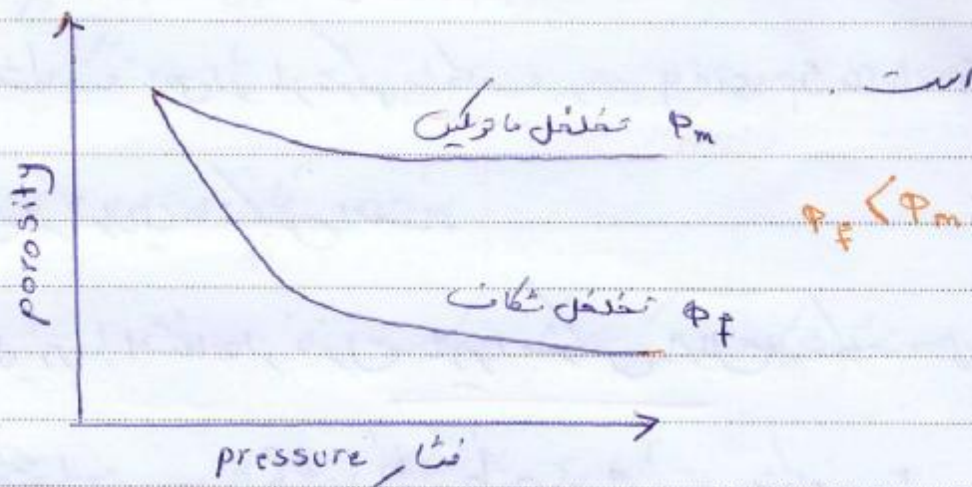 است.
تخلخل ماتریکس φm
φf < φm
تخلخل شکاف φf
porosity
pressure فشار